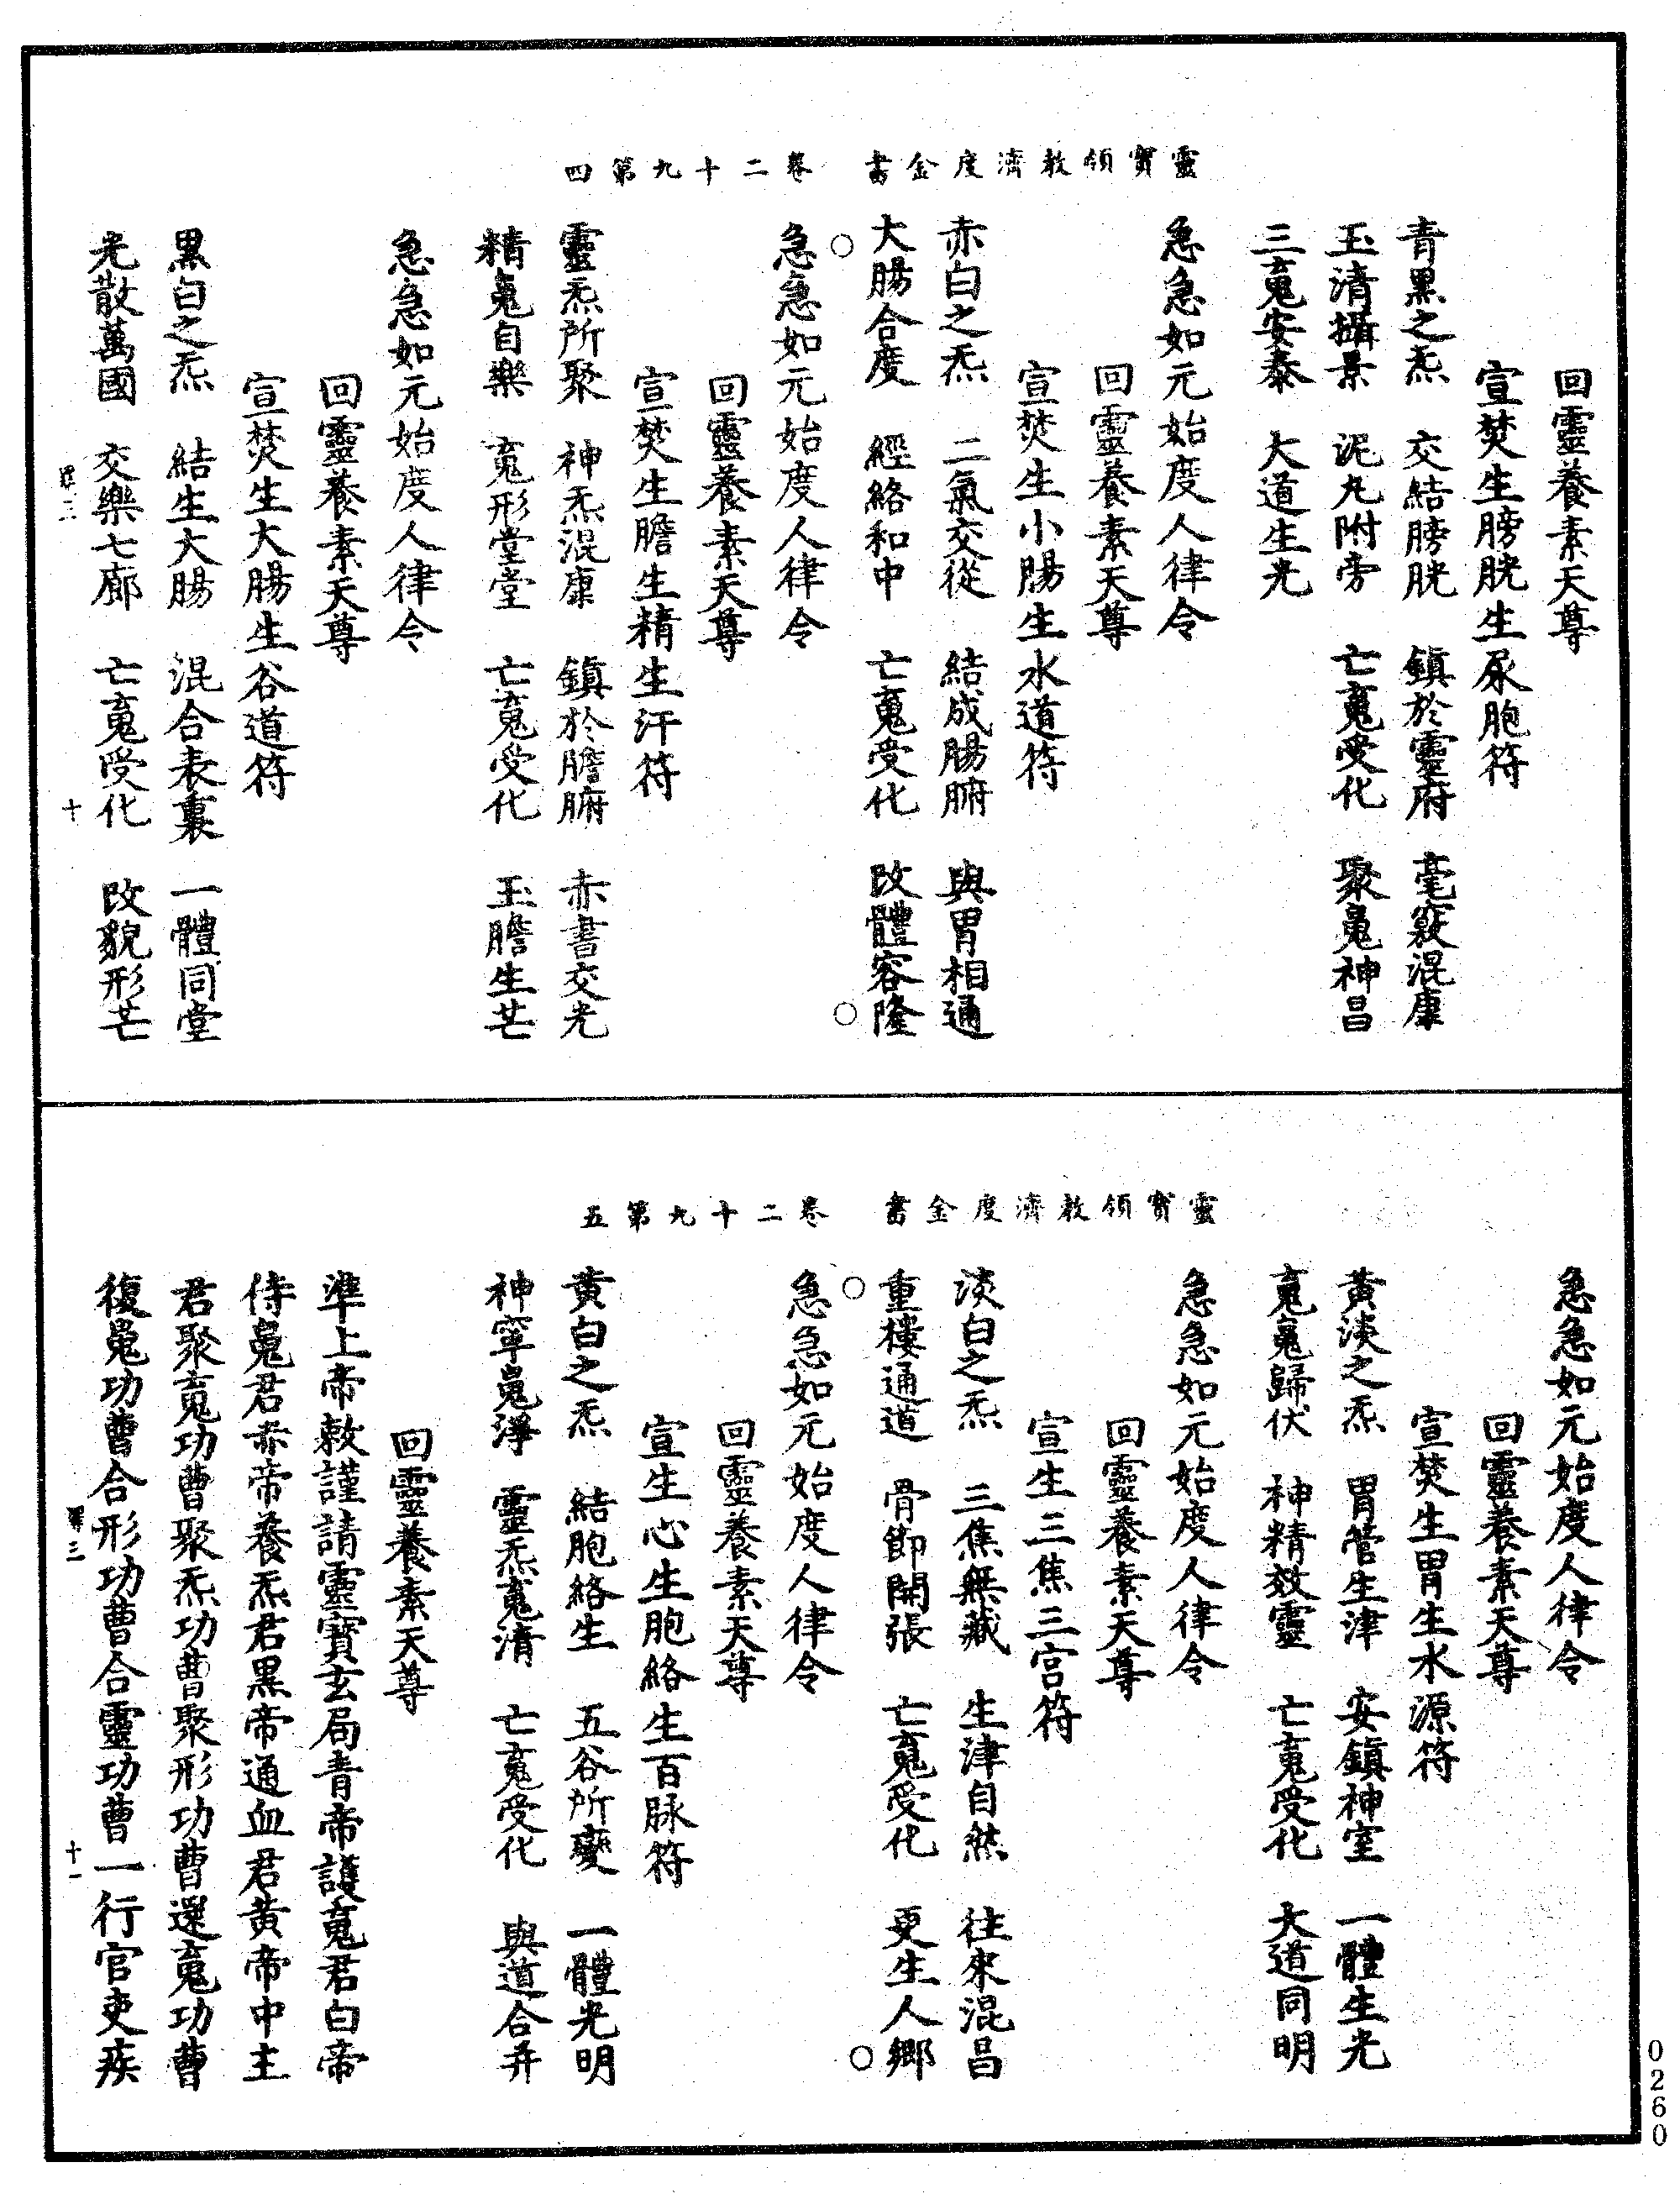 靈寶領教濟度金書　卷二十九第四
回靈養素天尊
宣焚生膀胱生尿胞符
青黑之炁　交結膀胱　鎮於靈府　毫竅混康
玉清攝景　泥丸附旁　亡䰟受化　聚䰟神昌
三䰟安泰　大道生光
急急如元始度人律令
回靈養素天尊
宣焚生小腸生水道符
赤白之炁　二氣交從　結成腸腑　與胃相通
大腸合度　經絡和中　亡䰟受化　改體容隆
急急如元始度人律令
回靈養素天尊
宣焚生膽生精生汗符
靈炁所聚　神炁混康　鎮於膽腑　赤書交光
精䰟自樂　䰟形堂堂　亡䰟受化　玉膽生芒
急急如元始度人律令
回靈養素天尊
宣焚生大腸生谷道符
黑白之炁　結生大腸　混合表裏　一體同堂
光散萬國　交樂七廊　亡䰟受化　改貌形芒
十
靈寶領教濟度金書　卷二十九第五
急急如元始度人律令
回靈養素天尊
宣焚生胃生水源符
黃淡之炁　胃管生津　安鎮神室　一體生光
䰟䰟歸伏　神精效靈　亡䰟受化　大道同明
急急如元始度人律令
回靈養素天尊
宣生三焦三宮符
淡白之炁　三焦無藏　生津自然　往來混昌
重樓通道　骨節開張　亡䰟受化　更生人鄉
急急如元始度人律令
回靈養素天尊
宣生心生胞絡生百脉符
黃白之炁　結胞絡生　五谷所變　一體光明
神寧䰟淨　靈炁䰟清　亡䰟受化　與道合并
回靈養素天尊
準上帝敕謹請靈寶玄局青帝護䰟君白帝
侍䰟君赤帝養炁君黑帝通血君黃帝中主
君聚䰟功曹聚炁功曹聚形功曹還䰟功曹
復䰟功曹合形功曹合靈功曹一行官吏疾
十一
0260